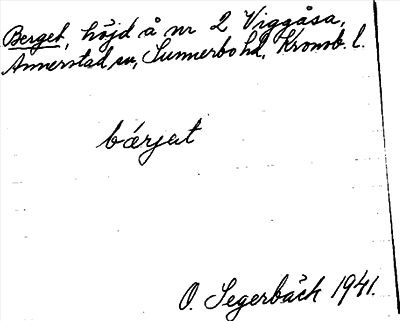 Berget, höjd å nr 2 Viggåsa,
Annerstad sn, Sunnerbo hd, Kronob. l.
bärjat
O. Segerbäck 1941.